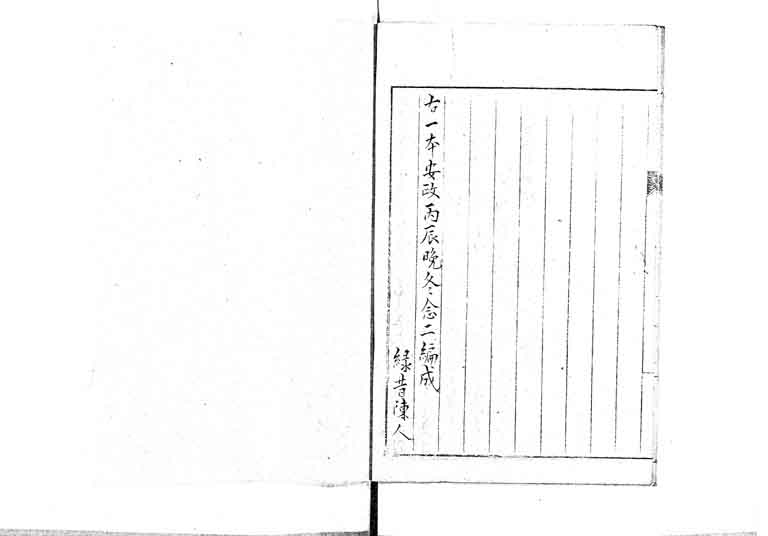 古一本安政丙辰晩冬念二編成
緑昔陳人